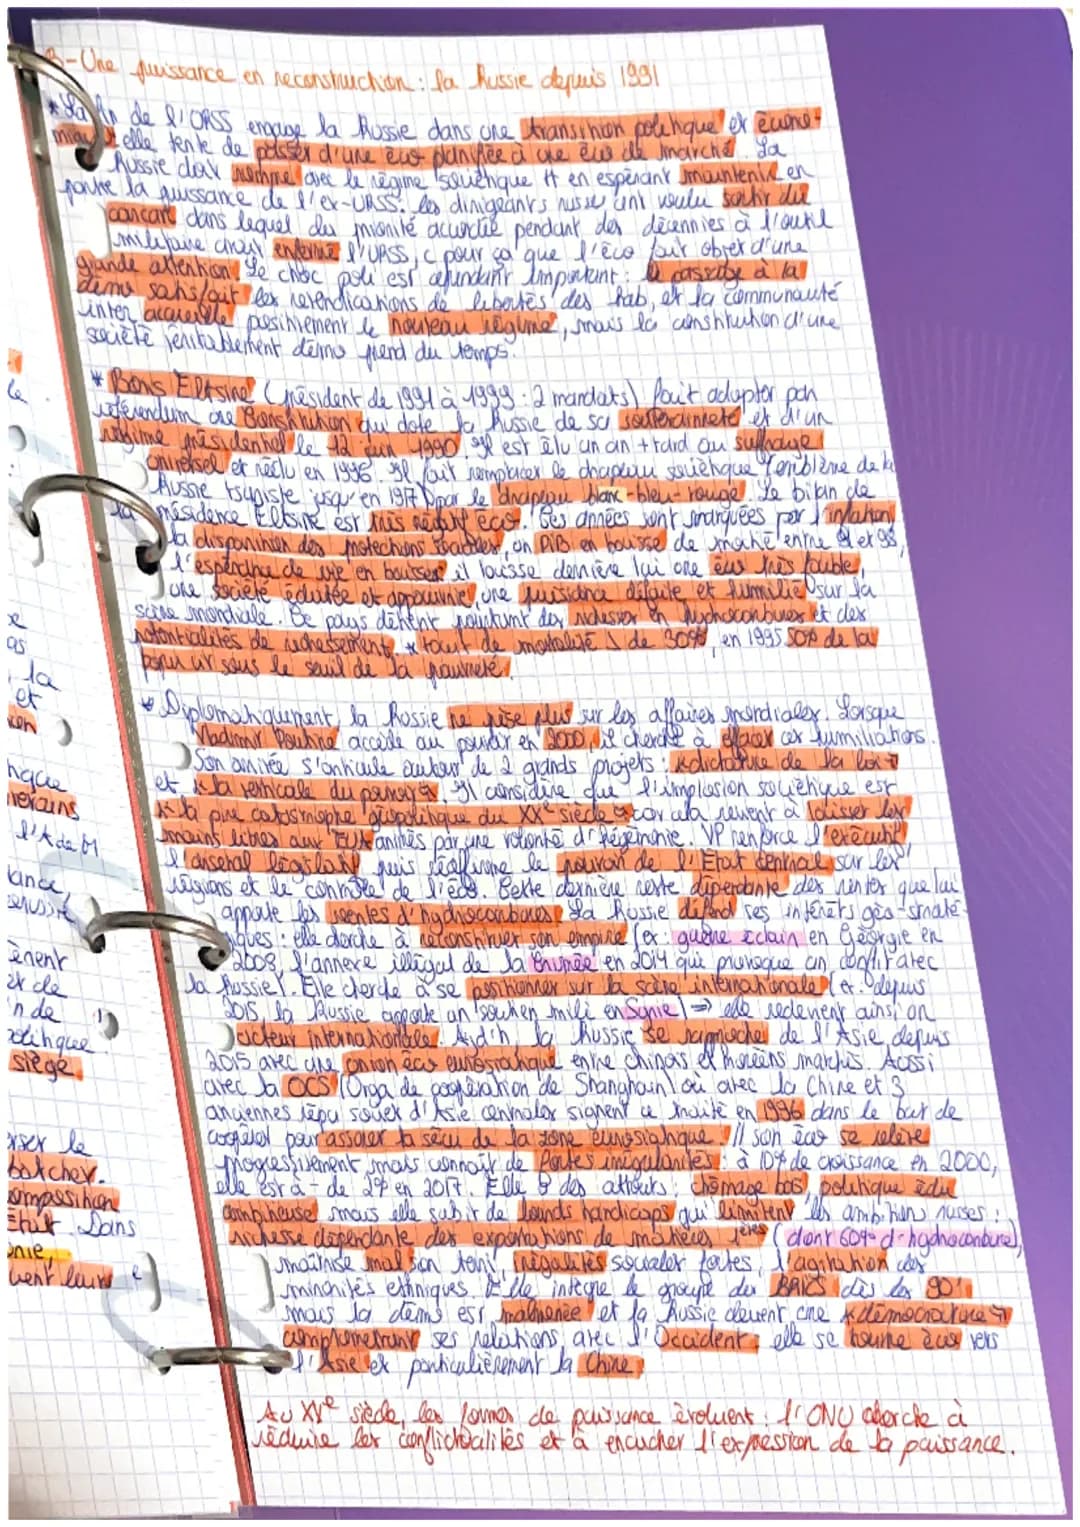 B-Une puissance en reconstruction : la Russie depuis 1991
* La fin de l'URSS engage la Russie dans une transition politique et écono-
mique et elle tente de passer d'une éco planifiée à une éco de marché. La
Russie doit rompre avec le régime soviétique tt en espérant maintenir en
partie la puissance de l'ex-URSS. les dirigeants russes ont voulu sortir du
carcan dans lequel du priorité accordée pendant des décennies à l'outil
militaire avait enfermé l'URSS, c pour ça que l'éco fait objet d'une
grande attention. Le choc poli est cependant important : le passage à la
démo satisfait les revendications de libertés des hab, et la communauté
inter accueille positivement le nouveau régime, mais la constitution d'une
société véritablement démo prend du temps.
* Boris Eltsine (président de 1991 à 1999 : 2 mandats) fait adopter par
référendum une Constitution qui dote la Russie de sa souveraineté et d'un
régime présidentiel le 12 juin 1990. Il est élu un an + tard au suffrage
universel et réélu en 1996. Il fait remplacer le drapeau soviétique l'emblème de la
Russie tsariste jusqu'en 1917) par le drapeau blanc-bleu-rouge. Le bilan de
la présidence Eltsine est très négatif éco. Ces années sont marquées par l'inflation,
la disparition des protections sociales, un PIB en baisse de moitié entre 91 et 98,
l'espérance de vie en baisse, il laisse derrière lui une éco très faible,
une société éclatée et appauvrie, une puissance défaite et humiliée sur la
scène mondiale. Ce pays détient pourtant des richesses en hydrocarbures et des
potentialités de redressement. * taux de mortalité de 30%, en 1995 50% de la
popu vit sous le seuil de la pauvreté.
* Diplomatiquement, la Russie ne pèse plus sur les affaires mondiales. Lorsque
Vladimir Poutine accède au pouvoir en 2000, il cherche à effacer ces humiliations.
Son arrivée s'articule autour de 2 grands projets : « dictature de la loi »
et « la verticale du pouvoir ». Il considère que l'implosion soviétique est
« la pire catastrophe géopolitique du XXe siècle » car cela revient à laisser les
mains libres aux EU animés par une volonté d'hégémonie. VP renforce l'exécutif,
l'arsenal législatif, puis réaffirme le pouvoir de l'Etat central sur les
régions et le contrôle de l'éco. Cette dernière reste dépendante des rentes que lui
apporte les ventes d'hydrocarbures. La Russie défend ses intérêts géo-straté-
giques : elle cherche à reconstituer son empire (ex : guerre éclair en Géorgie en
2008, l'annexe illégal de la Crimée en 2014 qui provoque un conflit avec
la Russie). Elle cherche à se positionner sur la scène internationale (ex : depuis
2015, la Russie apporte un soutien mili en Syrie) ⇒ elle redevient ainsi, un
acteur internationale. Ajd'h, la Russie se rapproche de l'Asie depuis
2015 avec une union éco eurasiatique entre chinois et marchés. Aussi
avec la OCS (Orga de coopération de Shanghai) où avec la Chine et 3
anciennes répu soviet d'Asie centrales signent ce traité en 1996 dans le but de
coopérer pour assurer la sécu de la zone eurasiatique. // son éco se relève
progressivement mais connait de fortes irrégularités : à 10% de croissance en 2000,
elle est à - de 2% en 2017. Elle a des attouts : chômage bas, politique édu
ambitieuse mais elle subit de lourds handicaps qui limitent les ambitions russes :
richesse dépendante des exportations de matières 1ères (dont 60% d'hydrocarbure),
maîtrise mal son terri, inégalités sociales fortes, l'agitation des
minorités ethniques. Elle intègre le groupe des BRICS dès les 90'
mais la démo est malmenée et la Russie devient une « démocrature »
compromettant ses relations avec l'Occident : elle se tourne éco vers
l'Asie et particulièrement la Chine.
Au XXe siècle, les formes de puissance évoluent : l'ONU cherche à
réduire les conflictualités et à encadrer l'expression de la puissance.